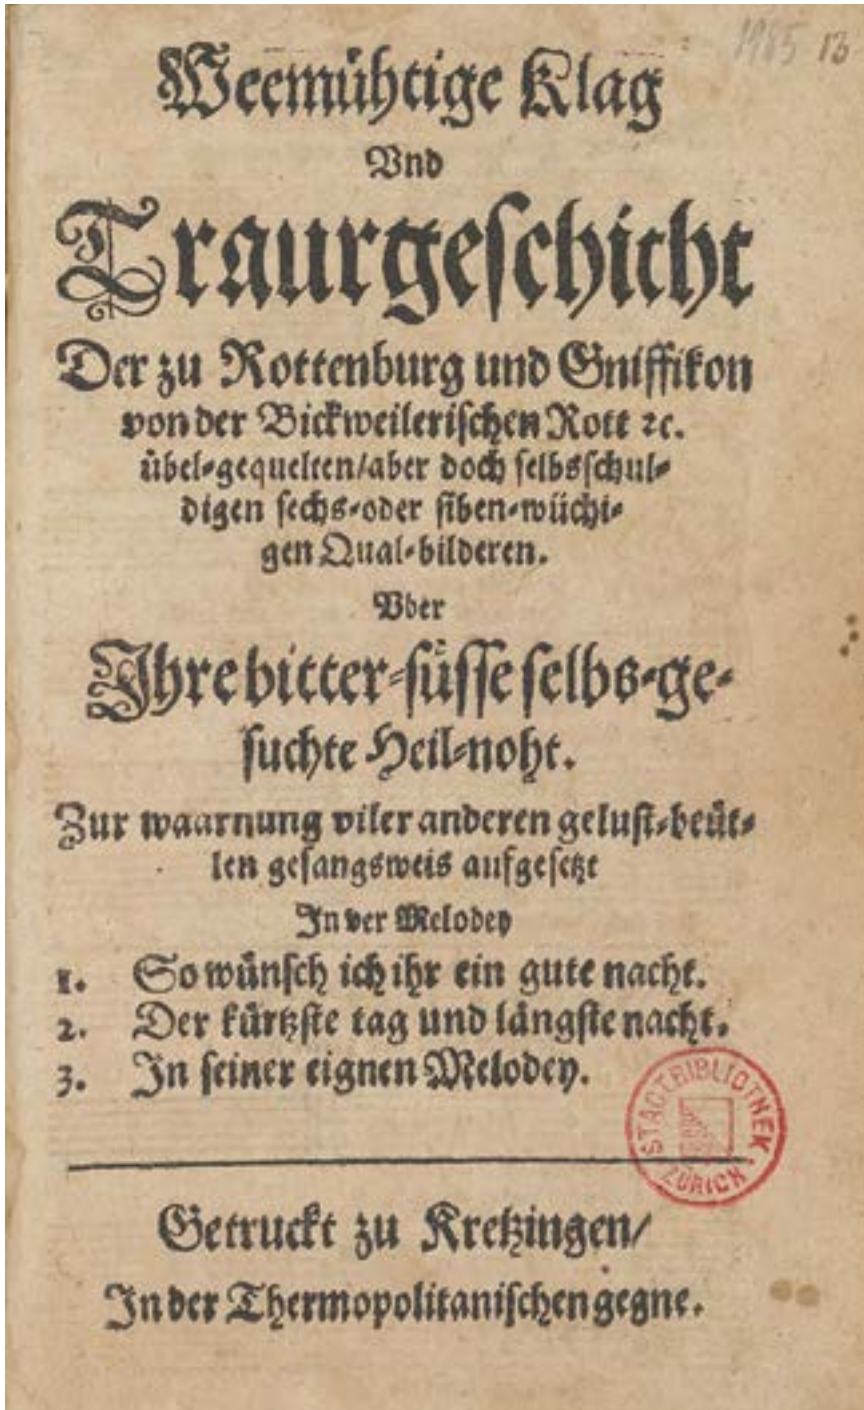 1985 13
Weemühtige Klag
Vnd
Traurgeschicht
Der zu Rottenburg und Gniffikon
von der Bickweilerischen Rott ꝛc.
übel-gequelten/aber doch selbsschul-
digen sechs-oder siben-wüchi-
gen Qual-bilderen.
Vber
Ihre bitter-süsse selbs-ge-
suchte Heil-noht.
Zur waarnung viler anderen gelust-beüt-
len gesangsweis aufgesetzt
In der Melodey
1. So wünsch ich ihr ein gute nacht.
2. Der kürtzste tag und längste nacht.
3. In seiner eignen Melodey.
STADTBIBLIOTHEK
ZÜRICH
Getruckt zu Kretzingen/
In der Thermopolitanischen gegne.